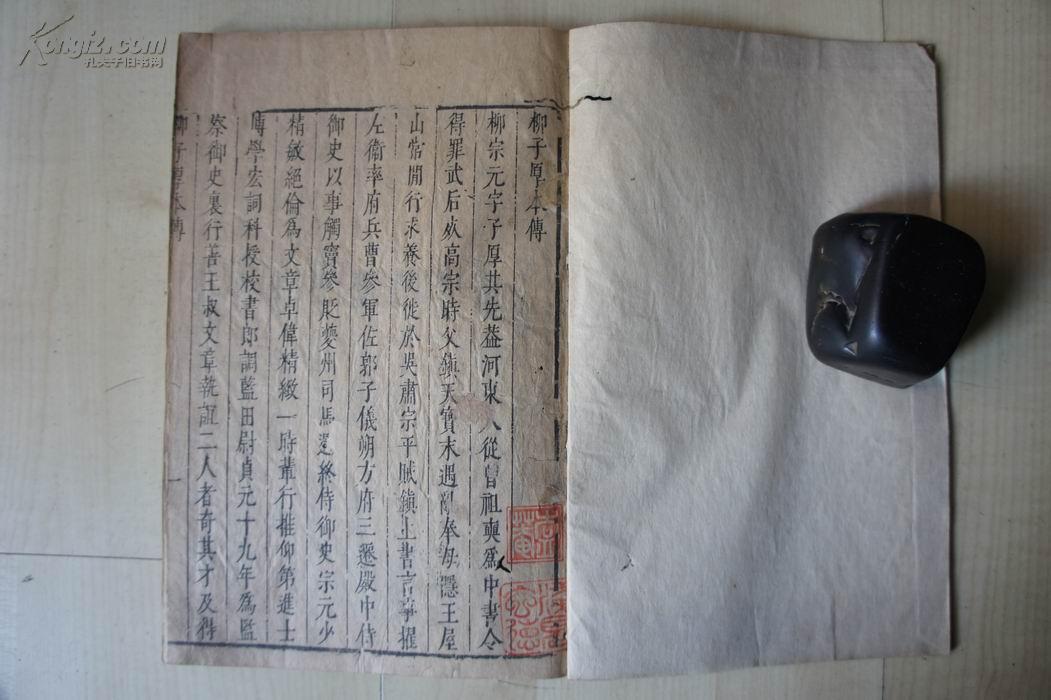 柳子厚本傳
柳宗元字子厚其先蓋河東人從曾祖奭爲中書令
得罪武后死高宗時父鎮天寶末遇亂奉母隱王屋
山常閒行求養後徙於吳肅宗平賊鎮上書言事擢
左衛率府兵曹參軍佐郭子儀朔方府三遷殿中侍
御史以事觸竇參貶夔州司馬還終侍御史宗元少
精敏絕倫爲文章卓偉精緻一時輩行推仰第進士
博學宏詞科授校書郎調藍田尉貞元十九年爲監
察御史裏行善王叔文韋執誼二人者奇其才及得
柳子厚本傳
一
Kongfz.com
孔夫子旧书网